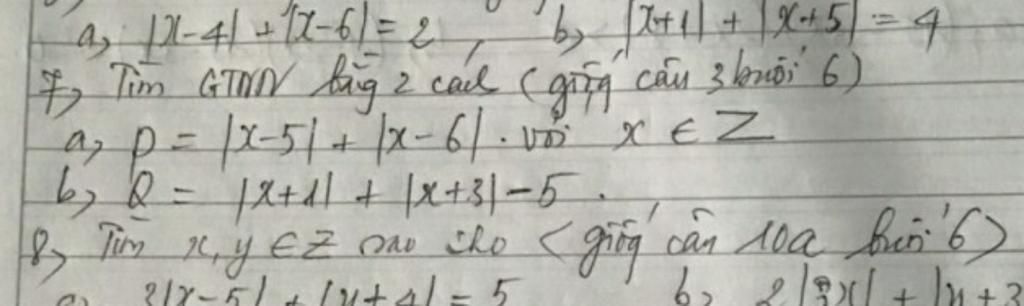 a, |x-4| + |x-6| = 2, b, |x+1| + |x+5| = 4
7, Tìm GTNN bằng 2 cách (giống câu 3 buổi 6)
a, P = |x-5| + |x-6|. với x ∈ Z
b, Q = |x+1| + |x+3| - 5.
8, Tìm x, y ∈ Z sao cho (giống câu 10a buổi 6)
a, 3|x-5| + |y+4| = 5 b,